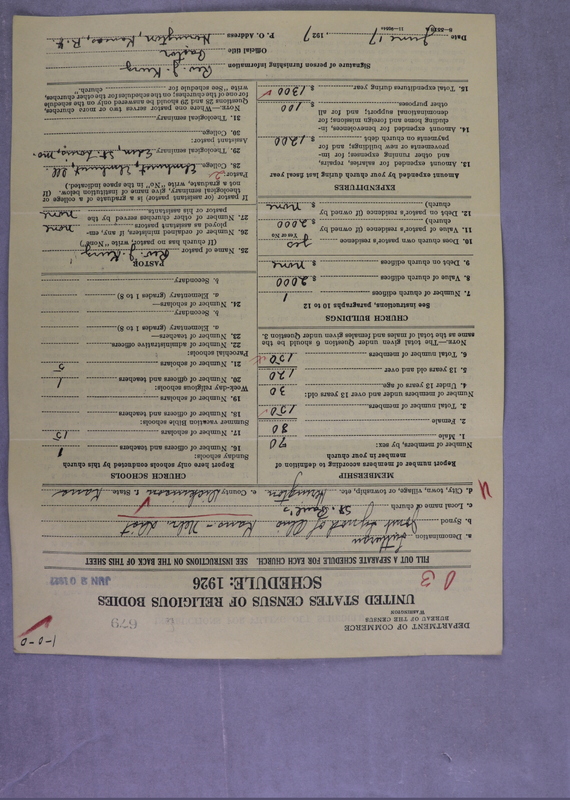 DEPARTMENT OF COMMERCE
BUREAU OF THE CENSUS
WASHINGTON
1-0-0
679
UNITED STATES CENSUS OF RELIGIOUS BODIES
SCHEDULE: 1926
JUN 20 1927
FILL OUT A SEPARATE SCHEDULE FOR EACH CHURCH. SEE INSTRUCTIONS ON THE BACK OF THIS SHEET
a. Denomination Lutheran
b. Synod Joint Synod of Ohio Kans-Nebr. Dist
c. Local name of church St. Paul's
d. City, town, village, or township, etc. Herington e. County Dickinson f. State Kans
MEMBERSHIP
Report number of members according to definition of member in your church
Number of members, by sex:
1. Male 70
2. Female 80
3. Total number of members 150
Number of members under and over 13 years old:
4. Under 13 years of age 30
5. 13 years old and over 120
6. Total number of members 150
NOTE.—The total given under Question 6 should be the same as the total of males and females given under Question 3.
CHURCH BUILDINGS
See instructions, paragraphs 10 to 12
7. Number of church edifices 1
8. Value of church edifices $ 2000
9. Debt on church edifices $ none
10. Does church own pastor's residence yes
Yes or No
11. Value of pastor's residence (if owned by church) $ 2000
12. Debt on pastor's residence (if owned by church) $ none
EXPENDITURES
Amount expended by your church during last fiscal year
13. Amount expended for salaries, repairs, and other running expenses; for improvements or new buildings; and for payments on church debt $ 1200
14. Amount expended for benevolences, including home and foreign missions; for denominational support; and for all other purposes $ 100
15. Total expenditures during year $ 1300
CHURCH SCHOOLS
Report here only schools conducted by this church
Sunday schools:
16. Number of officers and teachers 1
17. Number of scholars 15
Summer vacation Bible schools:
18. Number of officers and teachers
19. Number of scholars
Week-day religious schools:
20. Number of officers and teachers 1
21. Number of scholars 5
Parochial schools:
22. Number of administrative officers
23. Number of teachers—
a. Elementary (grades 1 to 8)
b. Secondary
24. Number of scholars—
a. Elementary (grades 1 to 8)
b. Secondary
PASTOR
25. Name of pastor Rev. J. King
(If church has no pastor, write "None")
26. Number of ordained ministers, if any, employed as assistant pastors none
27. Number of other churches served by the pastor or his assistants none
If pastor (or assistant pastor) is a graduate of a college or theological seminary, give name of institution below. (If not a graduate, write "No" in the space indicated.)
Pastor:
28. College Elmhurst, Elmhurst, Ill.
29. Theological seminary Eden, St. Louis, Mo.
Assistant pastor:
30. College
31. Theological seminary
NOTE.—When one pastor serves two or more churches, Questions 28 and 29 should be answered only on the schedule for one of the churches; on the schedules for the other churches, write "See schedule for church."
Signature of person furnishing information Rev. J. King
Official title Pastor
P. O. Address Herington, Kansas, R. 2.
Date June 17, 1927